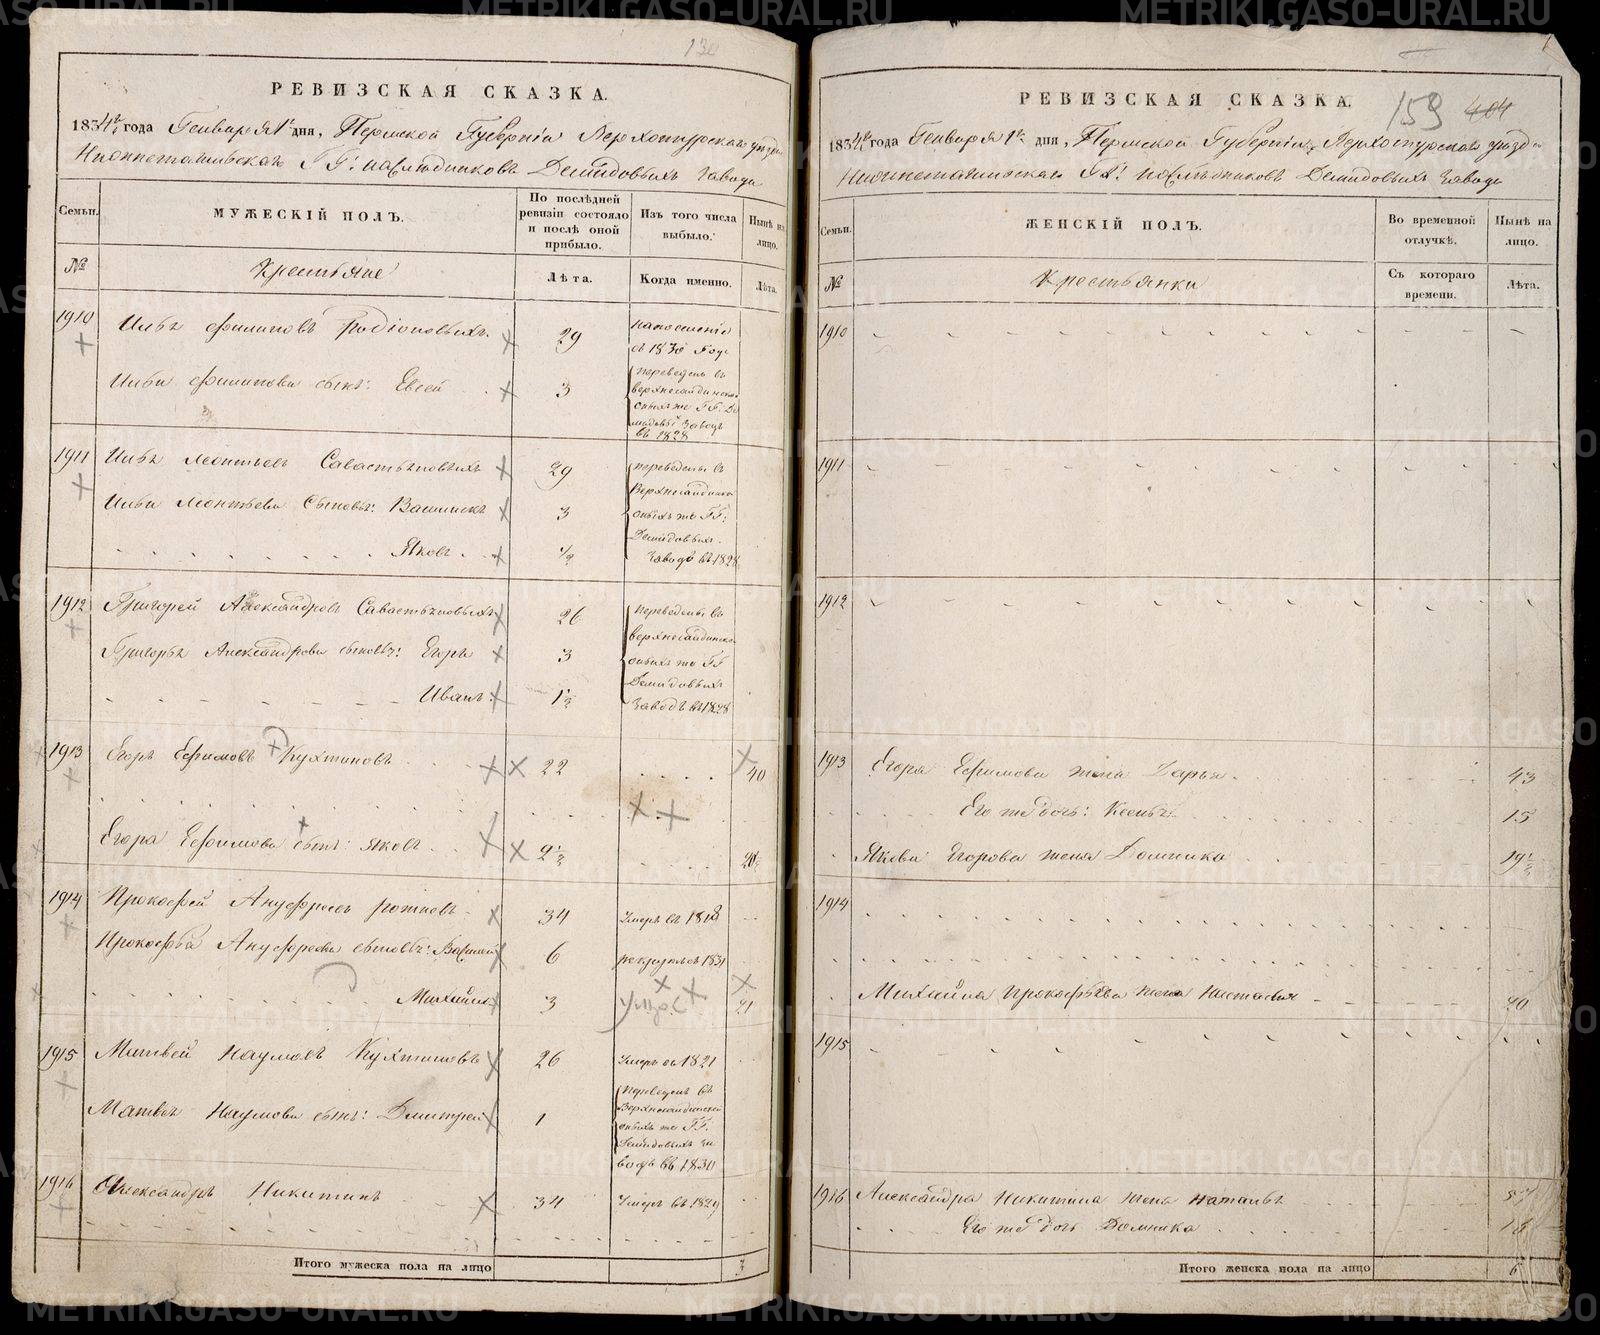 130
РЕВИЗСКАЯ СКАЗКА.
1834го года Генваря 1го дня, Пермской Губерніи Верхотурскаго уезда
Нижнетагильскаго ГГ: наследниковъ Демидовыхъ завода
Семьи.
МУЖЕСКІЙ ПОЛЪ.
По послѣдней ревизіи состояло и послѣ оной прибыло.
Изъ того числа выбыло.
Нынѣ на лицо.
№
Крестьяне
Лѣта.
Когда именно.
Лѣта.
1910 Илья Филиповъ Родіоновыхъ 29
въ 1830 году
Ильи Филипова сынъ: Евсей 3 переведенъ въ
ГГ: Де
завод
въ 1828
1911 Илья Леонтьевъ Савастьяновыхъ 29 переведены въ
Ильи Леонтьева сыновья: 3
оныхъ же ГГ:
Демидовыхъ
Яковъ 1/2 заводъ въ 1828
1912 Григорей Александровъ Савастьяновыхъ 26 переведены въ
Григорья Александрова сыновья: Егоръ 3
оныхъ же ГГ
Демидовыхъ
Иванъ 1 1/2 заводъ въ 1828
1913 Егоръ Ефимовъ Кухтиновъ 22 40
Егора Ефимова сынъ: Яковъ 2 1/2 20 1/2
1914 Прокофей Ануфріевъ 34 Умеръ въ 1818
Прокофья Ануфріева сыновья: Василей 6 1831
Михайло 3 21
1915 Матвей Наумовъ Кухтиновъ 26 Умеръ въ 1821
Матвея Наумова сынъ: Дмитрей 1 переведенъ въ
оныхъ же ГГ:
Демидовыхъ за
водъ въ 1830
1916 Александръ Никитинъ 34 Умеръ въ 1829
Итого мужеска пола на лицо 3
159 404
РЕВИЗСКАЯ СКАЗКА.
1834го года Генваря 1го дня, Пермской Губерніи Верхотурскаго уезда
Нижнетагильскаго ГГ: наследниковъ Демидовыхъ завода
Семьи.
ЖЕНСКІЙ ПОЛЪ.
Во временной отлучкѣ.
Нынѣ на лицо.
№
Крестьянки
Съ котораго времени.
Лѣта.
1910
1911
1912
1913 Егора Ефимова жена Дарья 43
Его же дочь: 15
Якова Егорова жена Домника 19 1/2
1914
Михайла Прокофьева жена 20
1915
1916 Александра Никитина жена 57
Его же дочь Домника 18
Итого женска пола на лицо 6
METRIKI.GASO-URAL.RU